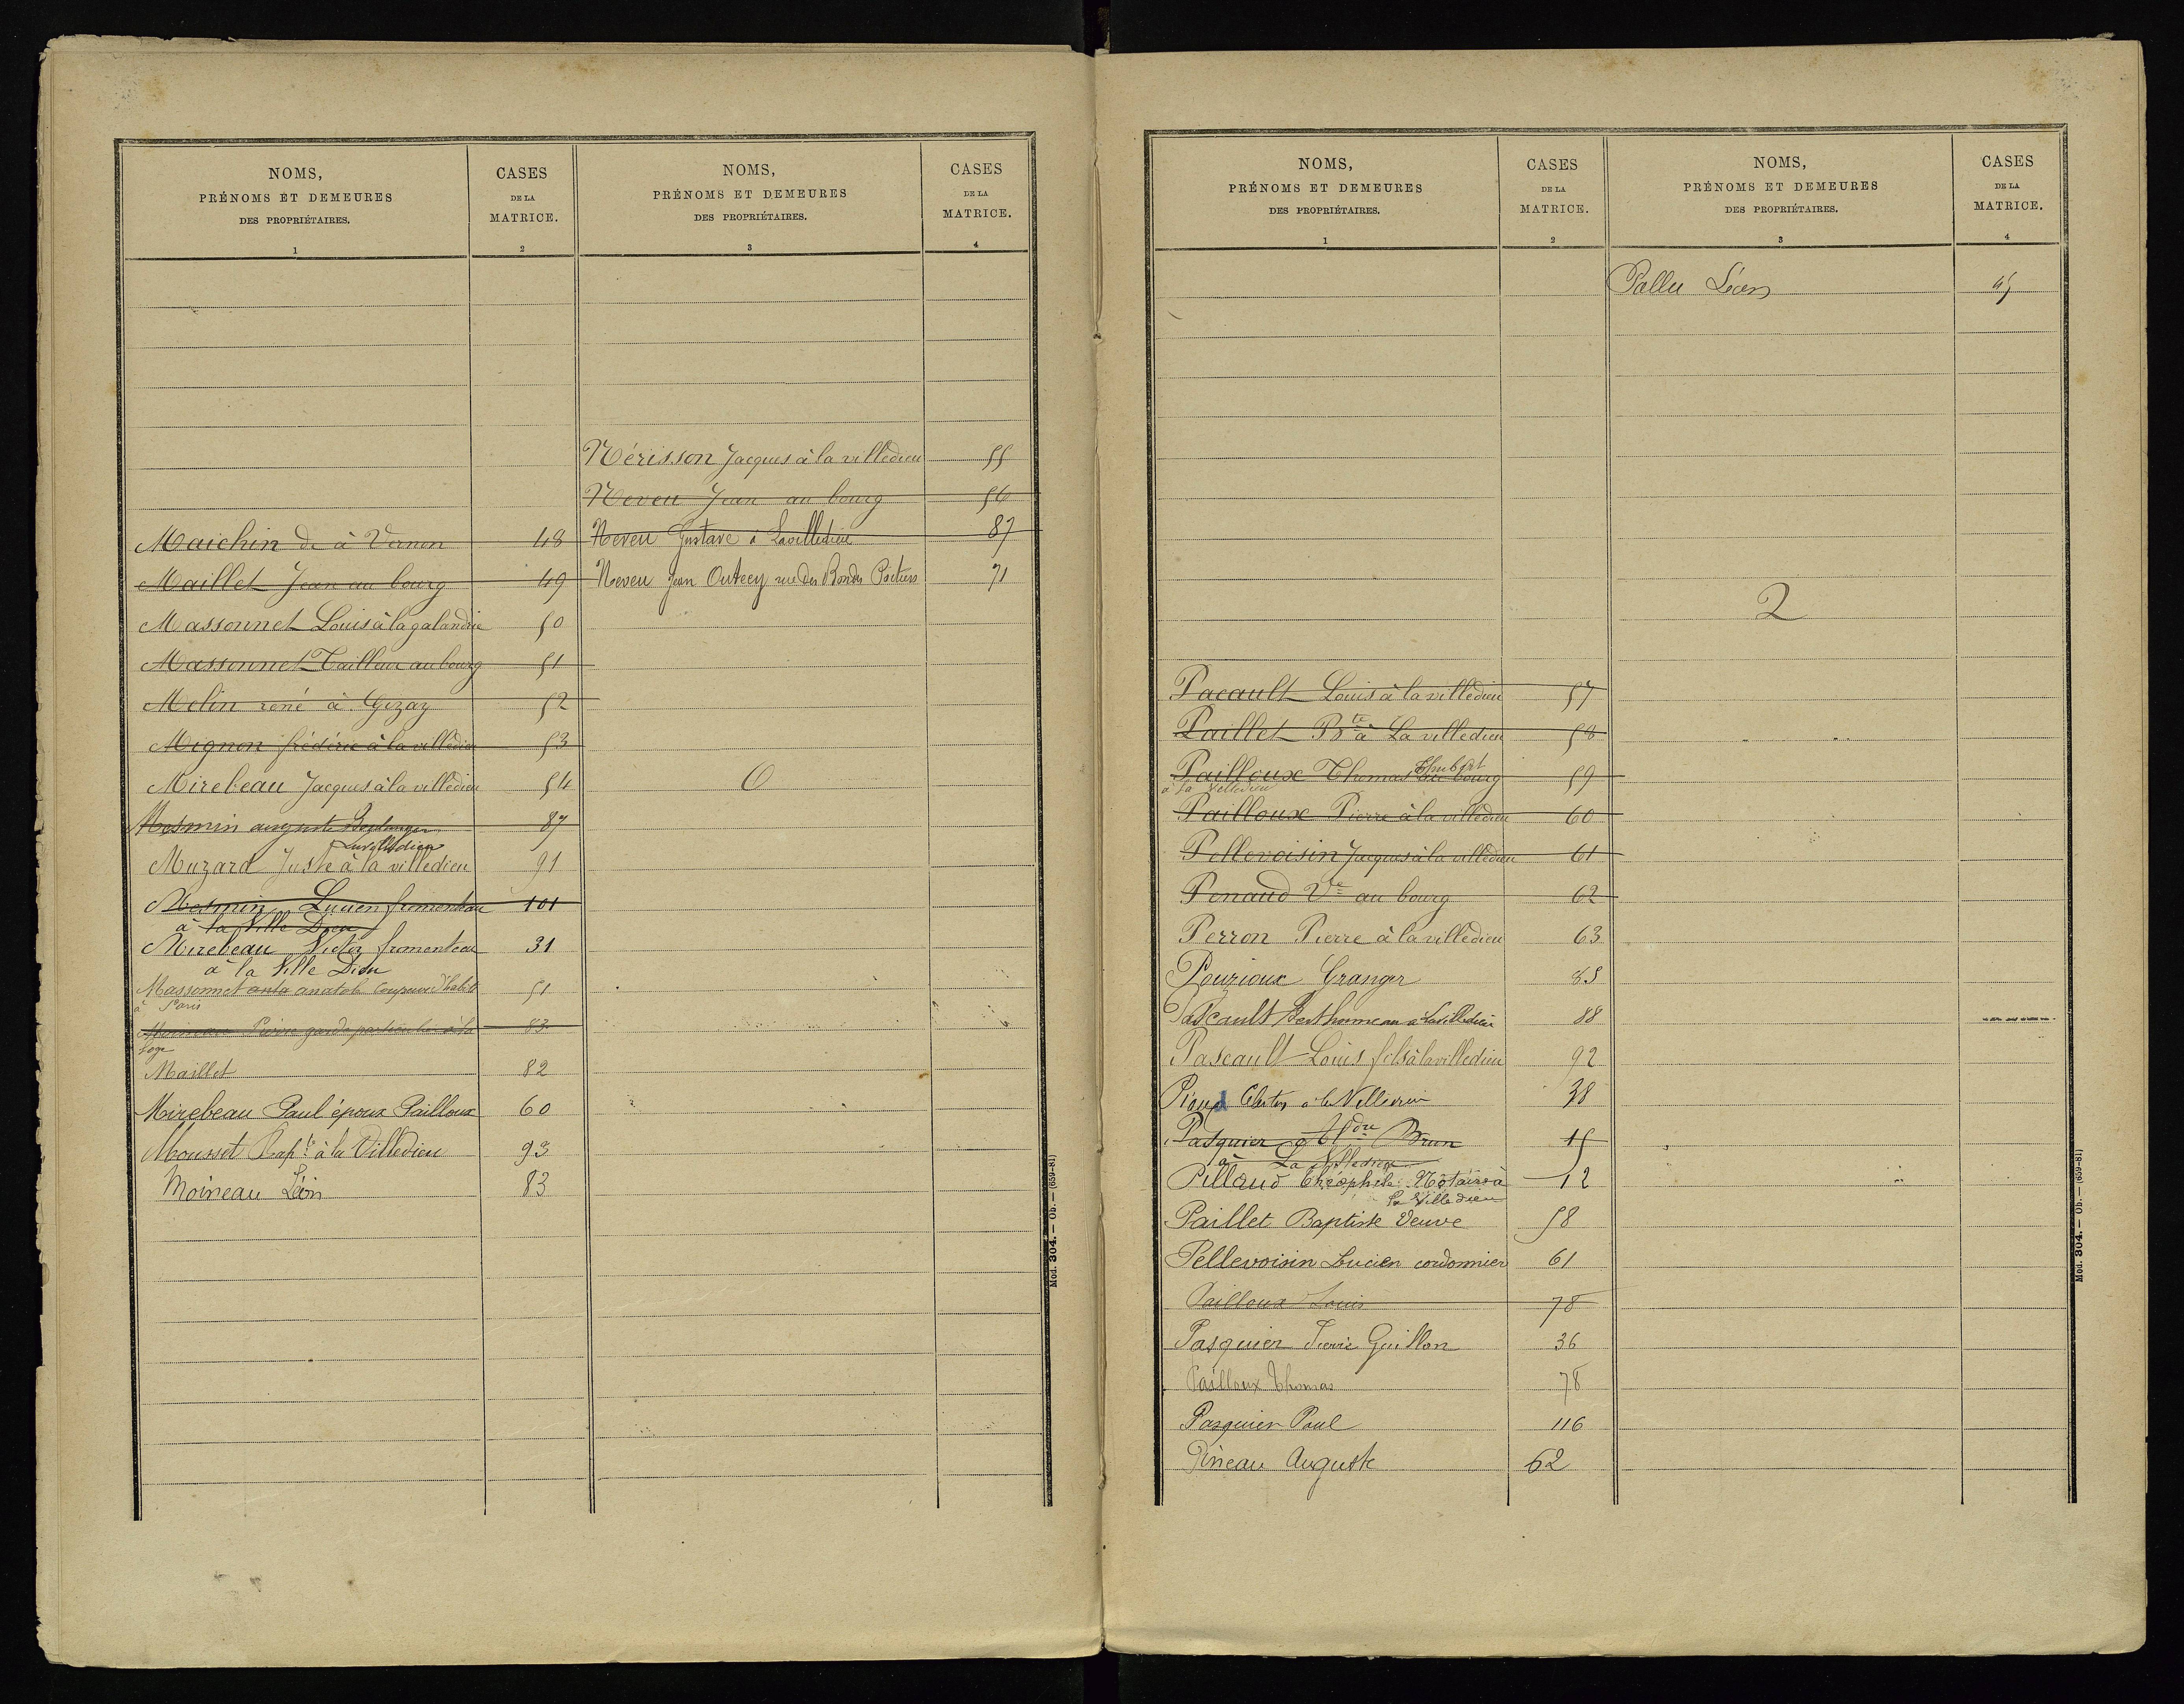 NOMS,
PRÉNOMS ET DEMEURES
DES PROPRIÉTAIRES.
1
CASES
DE LA
MATRICE.
2
Maichin de à Vernon 48
Maillet Jean au bourg 49
Massonnet Louis à la galandrie 50
Massonnet Tailleur au bourg 51
Melin réné à Gizay 52
Mignon frédéric à la villedieu 53
Mirebeau Jacques à la villedieu 54
Mesmin auguste Boulanger 87
Lavilledieu
Muzard Juste à la villedieu 91
Mesmin Lucien fromenteau 101
à la Ville Dieu
Mirebeau Victor fromenteau 31
à la Ville Dieu
Massonnet anatole Coupeur d'habit 51
à Paris
garde particulier à la 83
loge
Maillet 82
Mirebeau Paul époux Pailloux 60
Mousset Bapte à la Villedieu 93
Moineau Léon 83
NOMS,
PRÉNOMS ET DEMEURES
DES PROPRIÉTAIRES.
3
CASES
DE LA
MATRICE.
4
Nérisson Jacques à la villedieu 55
Neveu Jean au bourg 56
Neveu Gustave à Lavilledieu 87
Neveu Jean rue des Poitiers 71
O
Mod. 304. — Ob. — (659-81)
NOMS,
PRÉNOMS ET DEMEURES
DES PROPRIÉTAIRES.
1
CASES
DE LA
MATRICE.
2
Pacault Louis à la villedieu 57
Paillet Bte à La villedieu 58
Pailloux Thomas au bourg 59
à la Villedieu
Pailloux Pierre à la villedieu 60
Pellevoisin Jacques à la villedieu 61
Penaud Ve au bourg 62
Perron Pierre à la villedieu 63
Pouzioux Granger 85
Pascault Berthomeau à Lavilledieu 88
Pascault Louis fils à la villedieu 92
38
Pasquier Brun 15
à La Villedieu
Pillaud Théophile Notaire à 12
la Ville dieu
Paillet Baptiste Veuve 58
Pellevoisin Lucien cordonnier 61
Pailloux Louis 78
Pasquier Pierre Guillon 36
Pailloux Thomas 78
Pasquier Paul 116
Pineau Auguste 62
NOMS,
PRÉNOMS ET DEMEURES
DES PROPRIÉTAIRES.
3
CASES
DE LA
MATRICE.
4
Pallu Léon
2
Mod. 304. — Ob. — (659-81)